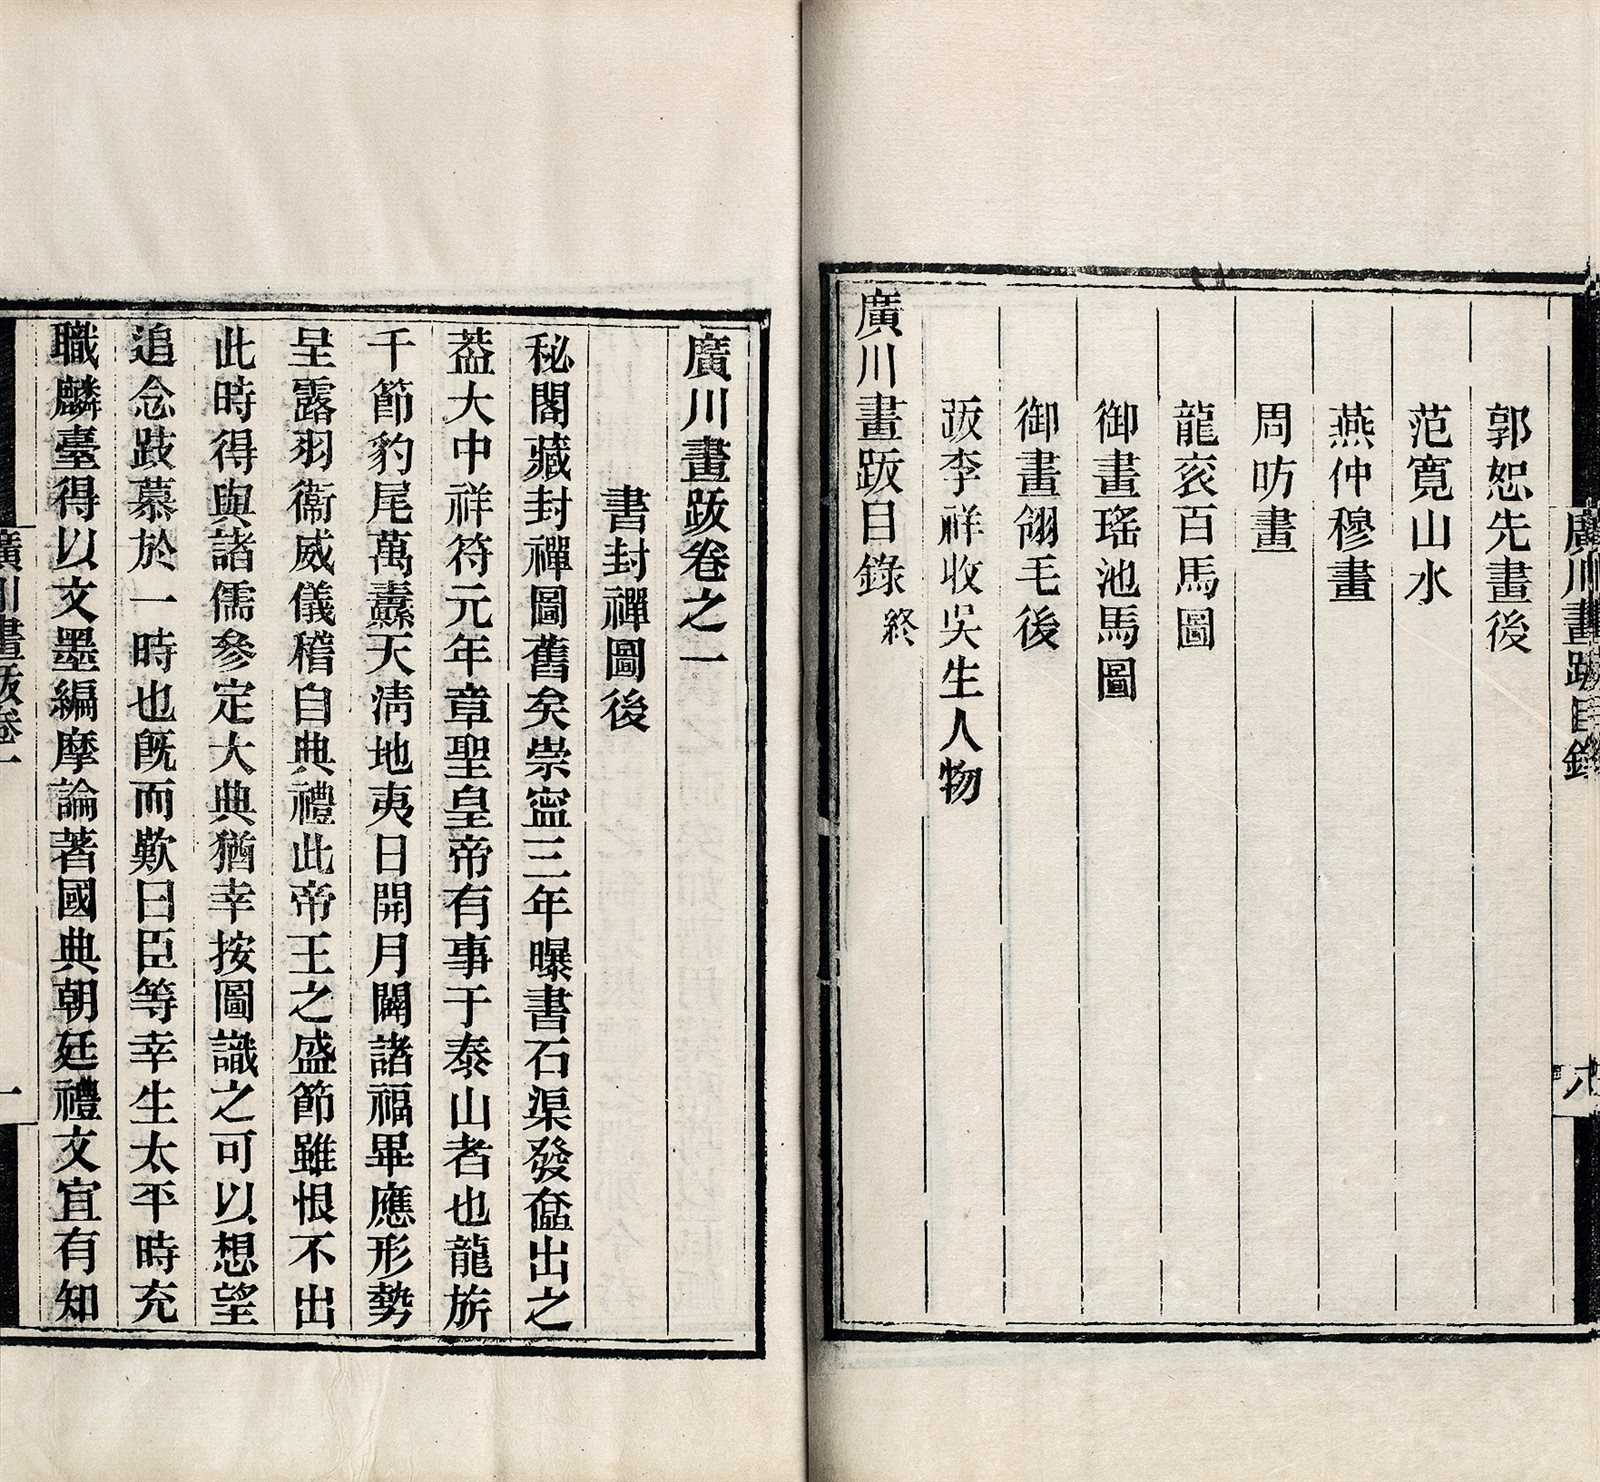 廣川畫跋目錄
八
郭恕先畫後
范寬山水
燕仲穆畫
周昉畫
龍衮百馬圖
御畫瑤池馬圖
御畫翎毛後
跋李祥收吳生人物
廣川畫跋目錄終
廣川畫跋卷之一
書封禪圖後
秘閣藏封禪圖舊矣崇寍三年曝書石渠發奩出之
葢大中祥符元年章聖皇帝有事于泰山者也龍旂
千節豹尾萬纛天淸地夷日開月闢諸福畢應形勢
呈露羽衞威儀稽自典禮此帝王之盛節雖恨不出
此時得與諸儒參定大典猶幸按圖識之可以想望
追念跂慕於一時也旣而歎曰臣等幸生太平時充
職麟臺得以文墨編摩論著國典朝廷禮文宜有知
廣川畫跋卷一
一